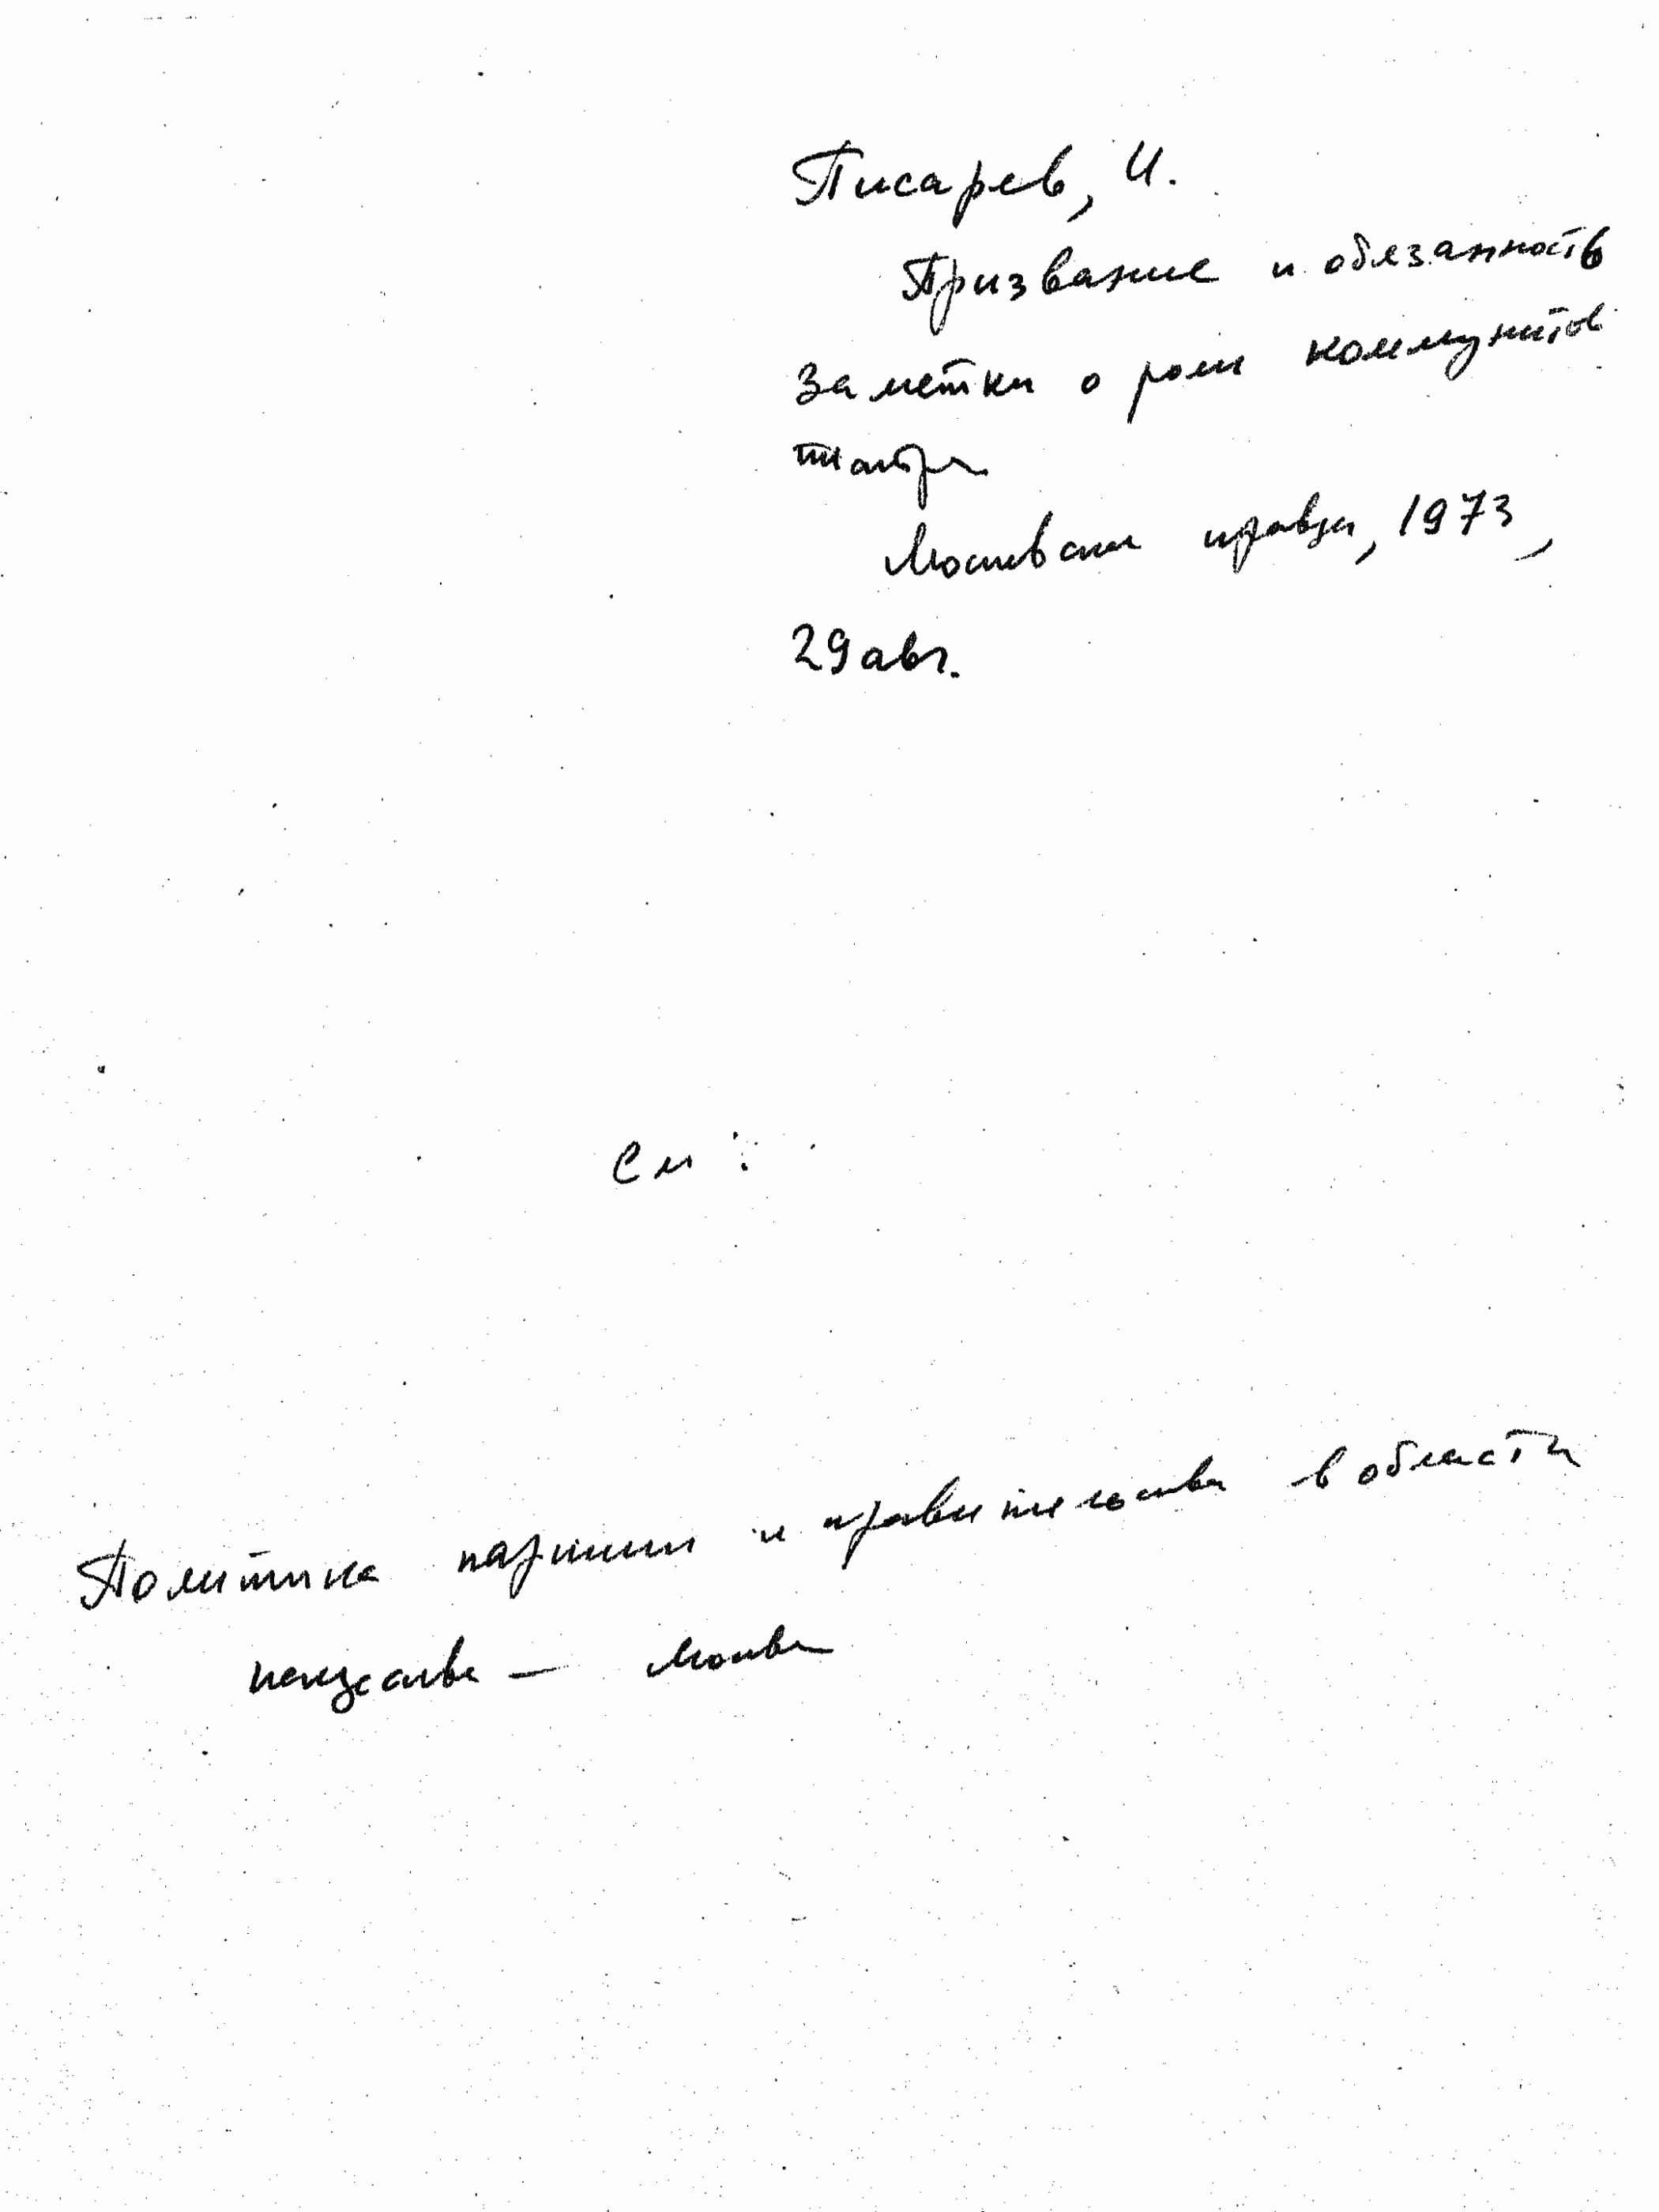 Писарев, И.
Призвание и обязанность
Заметки о роли коммунистов
театра
Московская правда, 1973,
29 авг.
См:
Политика партии и правительства в области
искусства — Москва